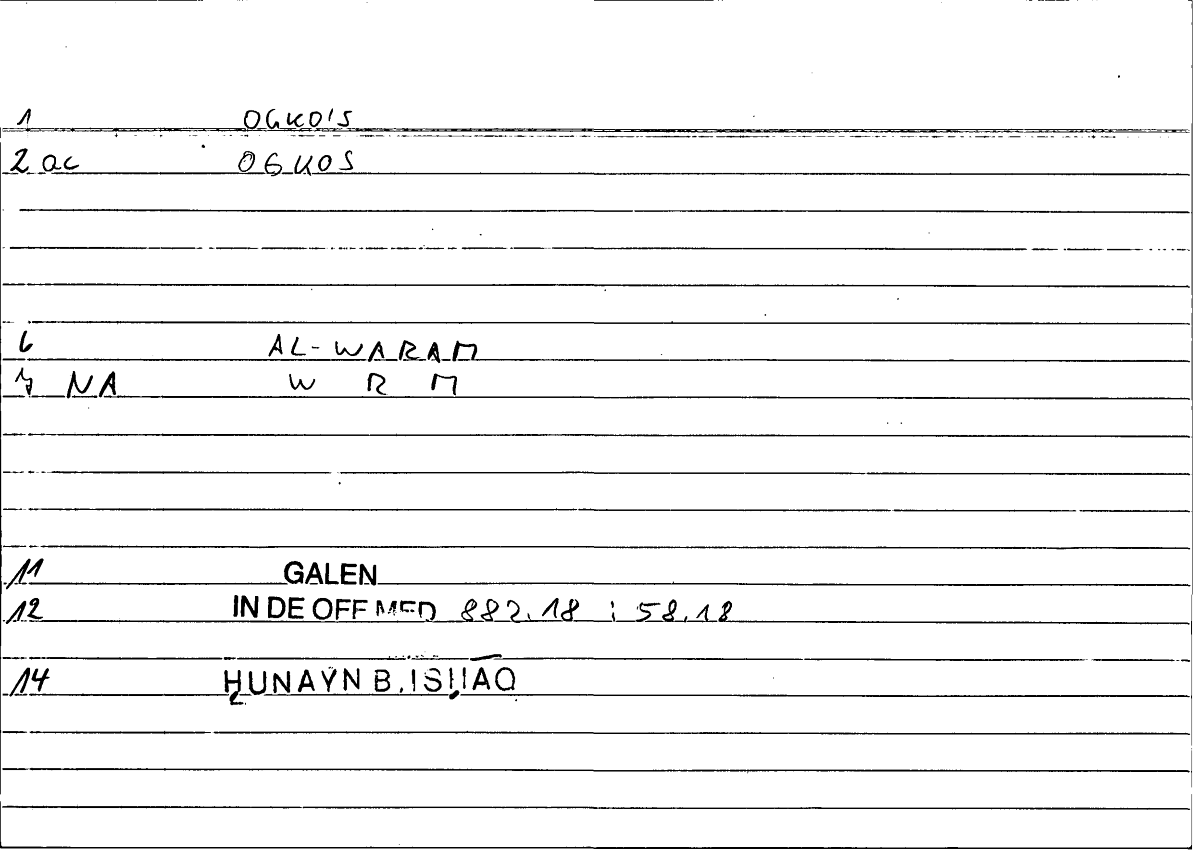 1 OGKO'S
2 ac OGKOS
6 AL-WARAM
7 NA W R M
11 GALEN
12 IN DE OFF MED 882.18 ; 58.18
14 ḤUNAYN B. ISḤĀQ